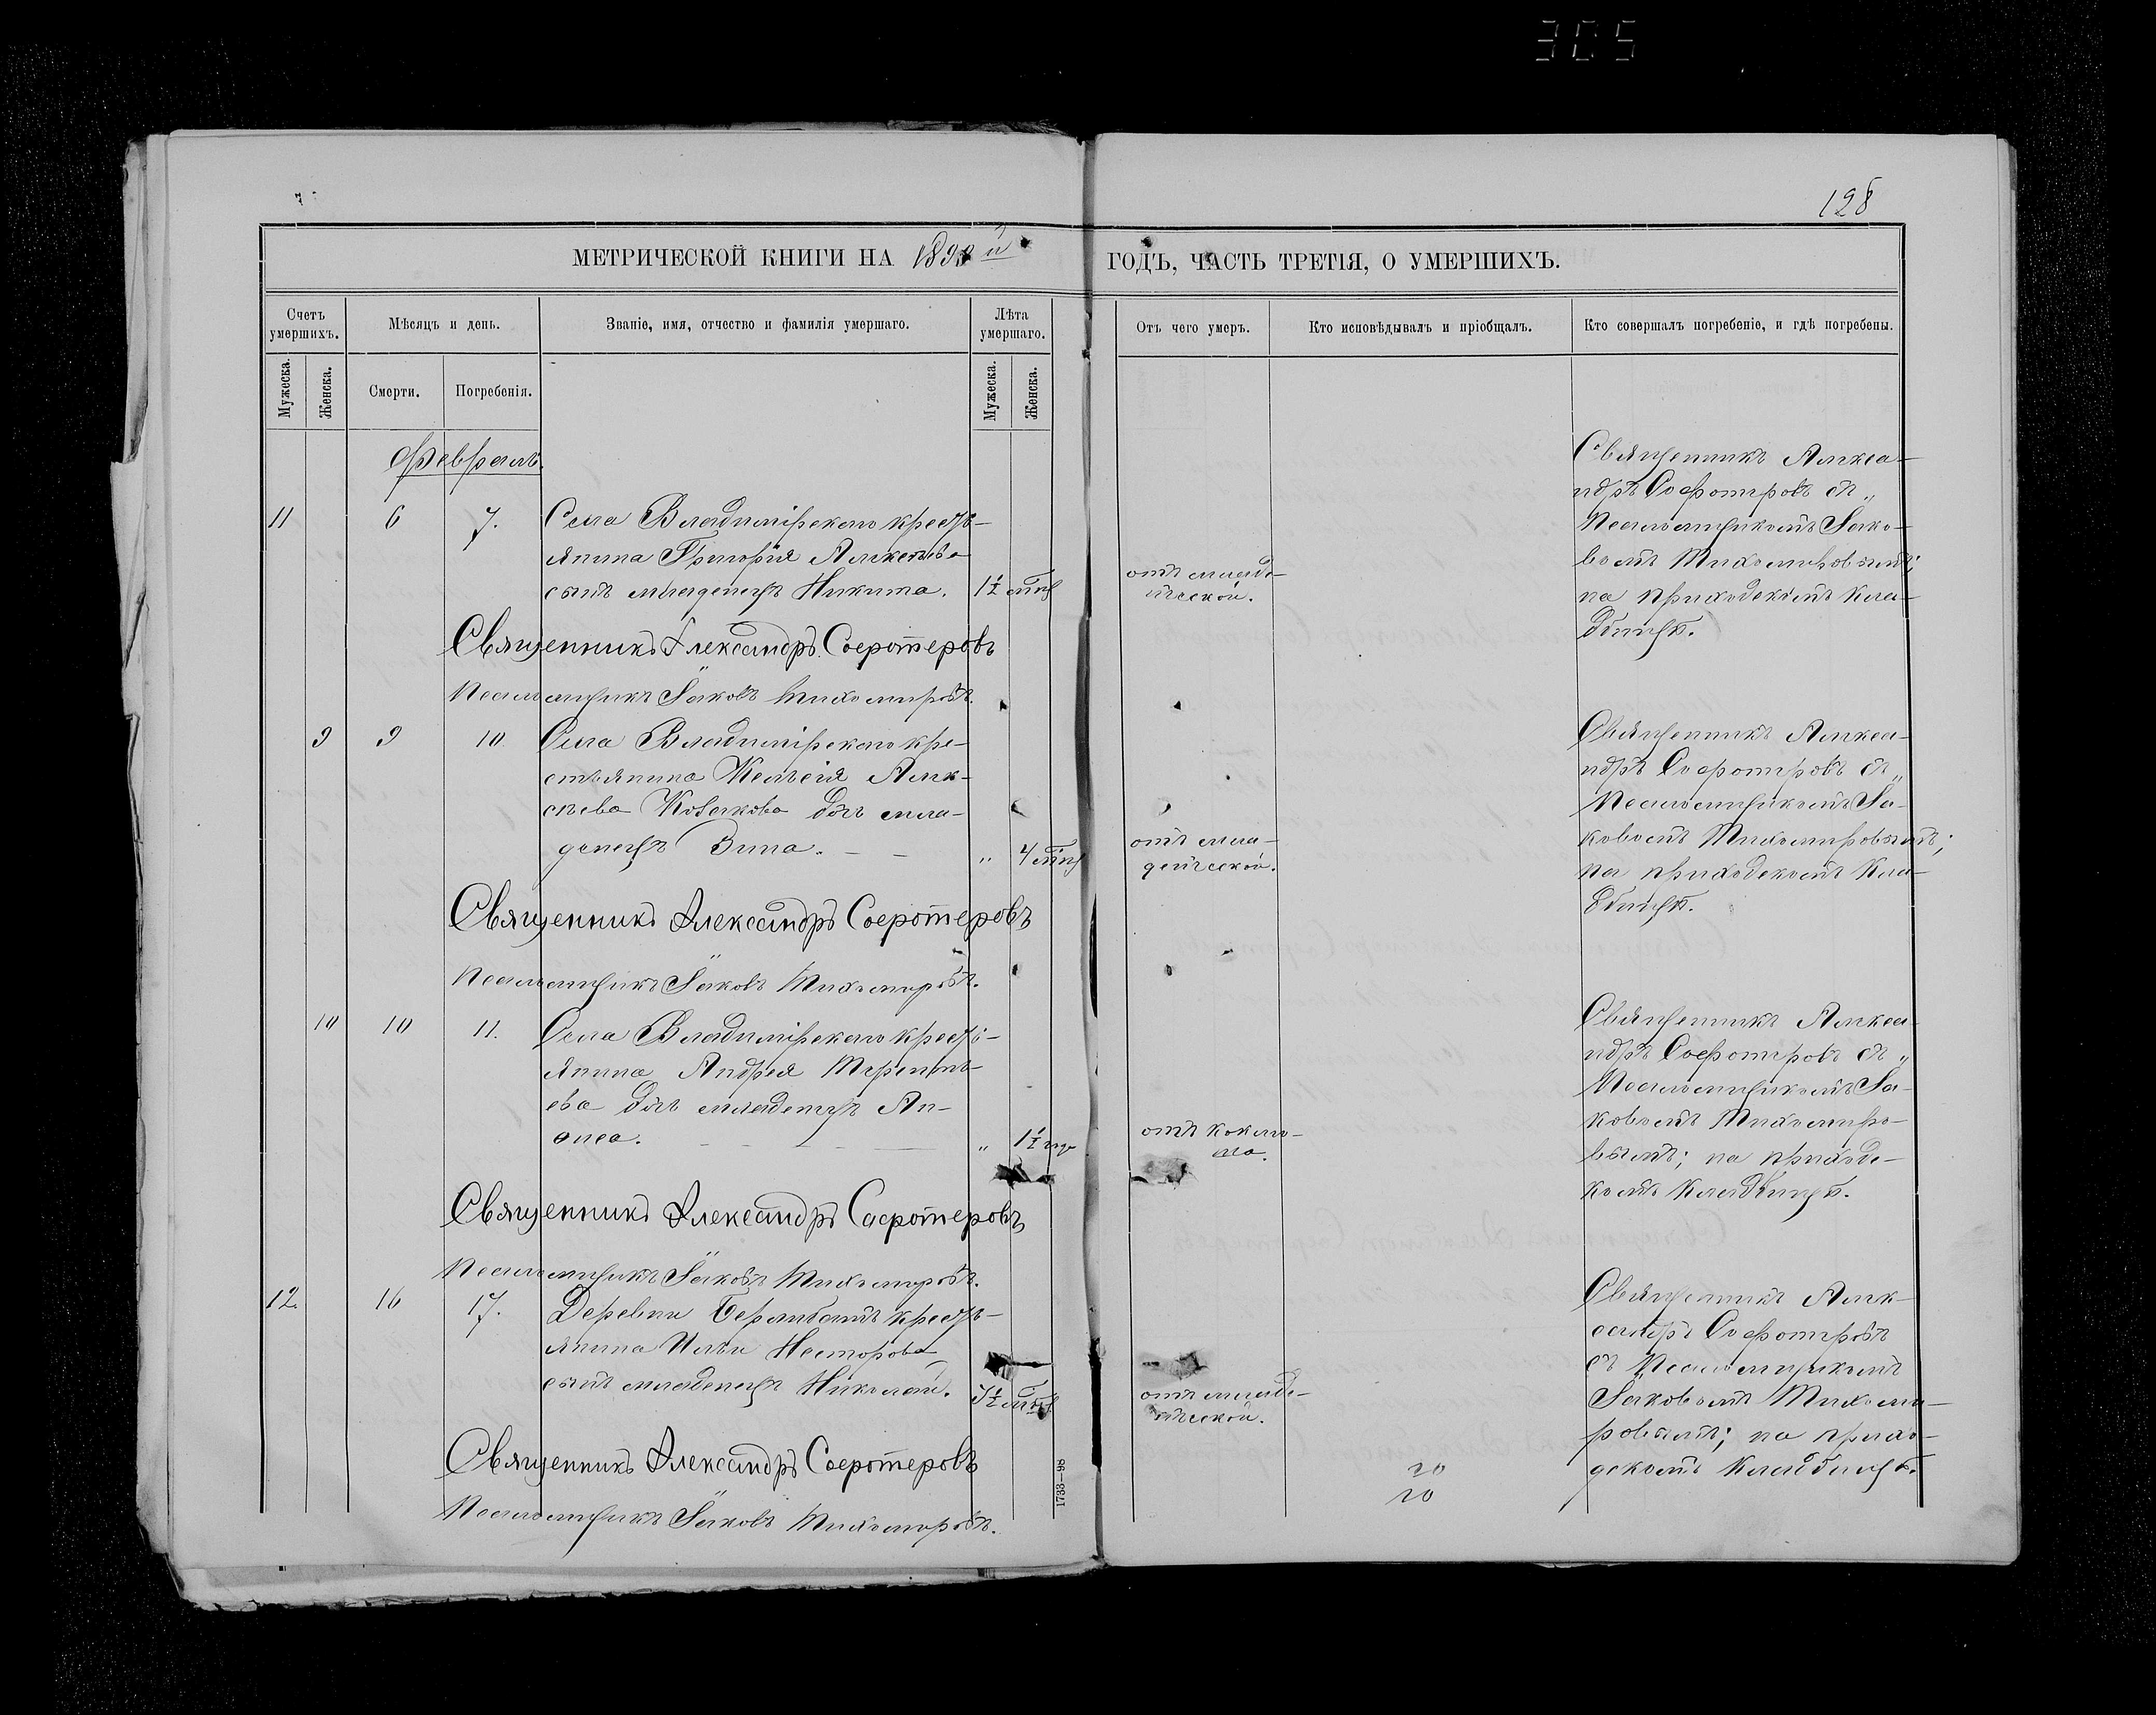 305
128
МЕТРИЧЕСКОЙ КНИГИ НА
ГОДЪ, ЧАСТЬ ТРЕТІЯ, О УМЕРШИХЪ.
Счетъ умершихъ.
Мѣсяцъ и день.
Званіе, имя, отчество и фамилія умершаго.
Лѣта умершаго.
Отъ чего умеръ.
Кто исповѣдывалъ и пріобщалъ.
Кто совершалъ погребеніе, и гдѣ погребены.
Мужеска.
Женска.
Смерти.
Погребенія.
Мужеска.
Женска.
Февраль.
11 6 7. Села Владимірскаго кресть-
янина Григорія Алексѣева
сынъ младенецъ Никита. 1½
отъ младе-
нческой.
Священникъ Алекса-
ндръ Соеротеровъ съ
Псаломщикомъ Яко-
вомъ Тихомировымъ;
на приходскомъ кла-
дбищѣ.
Священникъ Александръ Соеротеровъ
Псаломщикъ Яковъ Тихомировъ.
9 9 10 Села Владимірскаго кре-
стьянина Алек-
сѣева дочь мла-
денецъ Зина. „ 4
отъ мла-
денческой.
Священникъ Алекса-
ндръ Соеротеровъ съ
Псаломщикомъ Я-
ковомъ Тихомировымъ;
на приходскомъ кла-
дбищѣ.
Священникъ Александръ Соеротеровъ
Псаломщикъ Яковъ Тихомировъ.
10 10 11. Села Владимірскаго кресть-
янина Андрея Терентьева
дочь младенецъ Ан-
„ 1½
отъ
Священникъ Алекса-
ндръ Соеротеровъ съ
Псаломщикомъ Я-
ковомъ Тихомиро-
вымъ; на приходс-
комъ кладбищѣ.
Священникъ Александръ Соеротеровъ
Псаломщикъ Яковъ Тихомировъ.
12. 16 17. Деревни кресть-
янина Ильи Несторова
сынъ младенецъ Николай.
отъ младе-
нческой.
Священникъ Алек-
сандръ Соеротеровъ
съ Псаломщикомъ
Яковомъ Тихоми-
ровымъ; на прихо-
дскомъ кладбищѣ.
Священникъ Александръ Соеротеровъ
Псаломщикъ Яковъ Тихомировъ.
1733—98